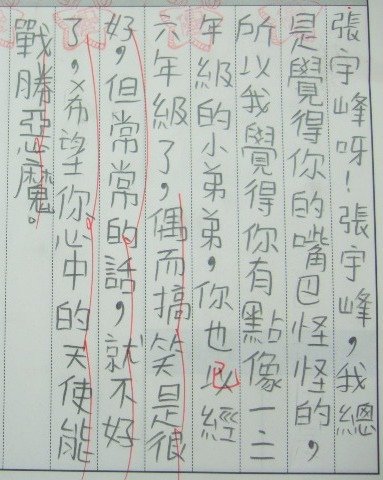 張宇峰呀！張宇峰，我總
是覺得你的嘴巴怪怪的，
所以我覺得你有點像一二
年級的小弟弟，你也以經
已
六年級了，偶而搞笑是很
好，但常常的話，就不好
了，希望你心中的天使能
戰勝惡魔。